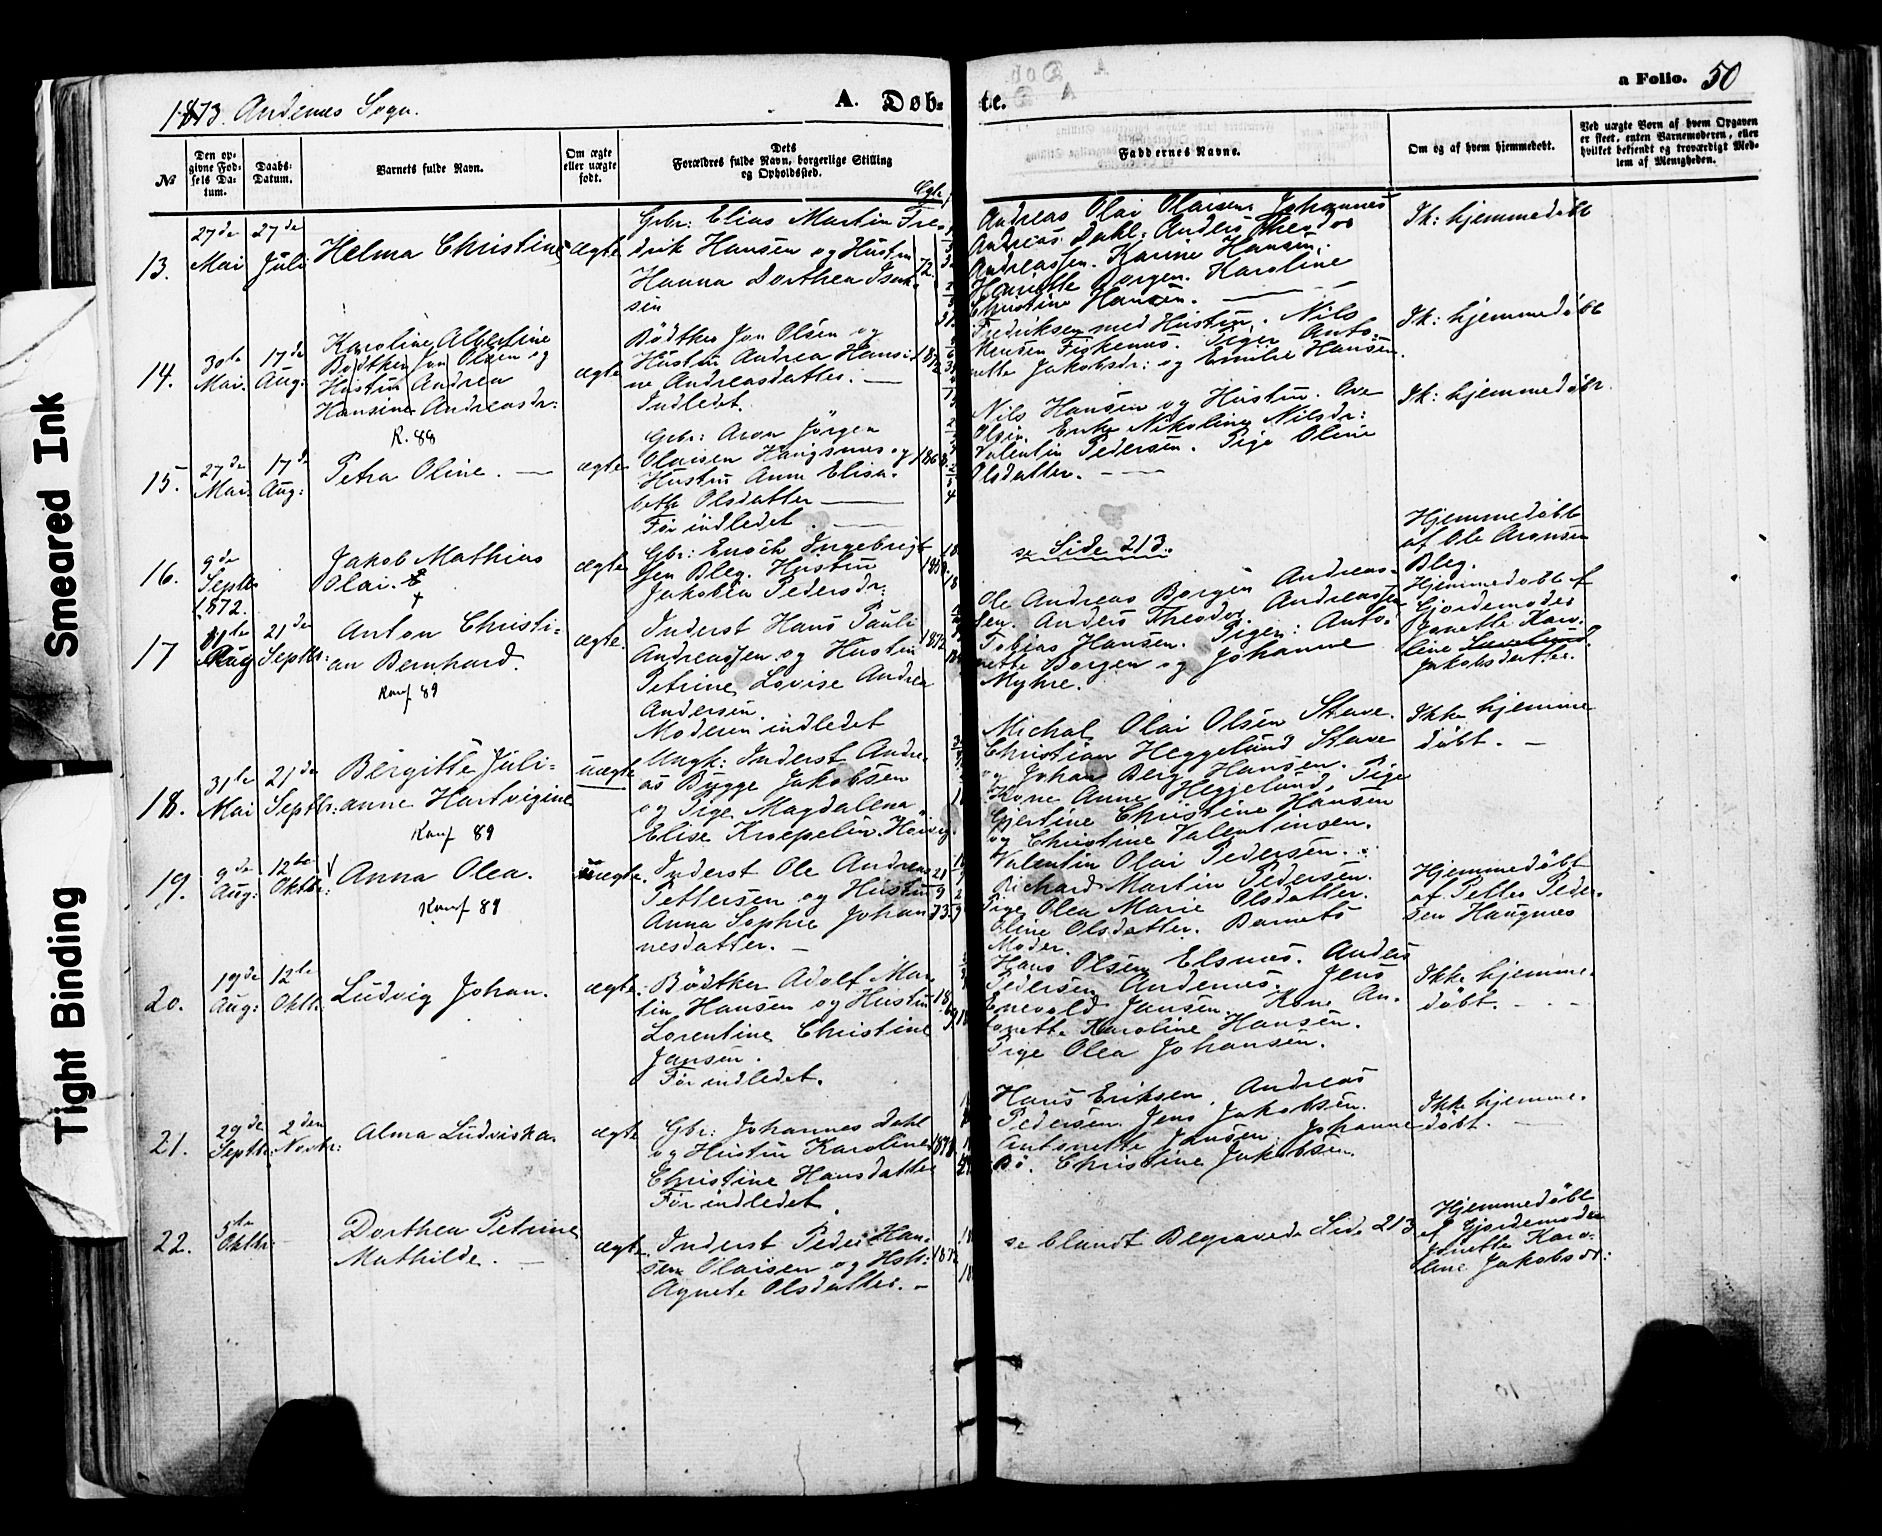 1873. Andenes Sogn.
A. Døb-
te.
a Folio. 50
№
Den op-
givne Fød-
sels Da-
tum.
Daabs-
Datum.
Barnets fulde Navn.
Om ægte
eller uægte
født.
Dets
Forældres fulde Navn, borgerlige Stilling
og Opholdssted.
Faddernes Navne.
Om og af hvem hjemmedøbt.
Ved uægte Børn af hvem Opgaven
er skeet, enten Barnemoderen, eller
hvilket bekjendt og troværdigt Med-
lem af Menigheden.
13.
27de
Mai
27de
Juli
Helma Christine
ægte
Gbr: Elias Martin Fre-
drik Hansen og Hustru
Hanna Dorthea Isak-
sen
72.
Andreas Olai Olaisen. Johannes
Andreas Dahl. Anders Theodor
Andreassen. Karine Hansen.
Henriette Borgen. Karoline
Christine Hansen.
Ik: hjemmedøbt
14.
30te
Mai.
17de
Aug:
Karoline Albertine
Bødtker Jon Olsen og
Hustru Andrea
Hansine Andreasdr:
K. 88
ægte
Bødtker Jon Olsen og
Hustru Andrea Hansi-
ne Andreasdatter.
Indledet.
1872
Fredriksen med Hustru. Nils
Mensen Fiskenes. Piger Anto-
nette Jakobsdr: og Emilie Hansen.
Ik: hjemmedøbt
15.
27de
Mai.
17de
Aug:
Petra Oline.
ægte
Gbr: Aron Jørgen
Olaisen Haugnes og
Hustru Anne Elisa-
beth Olsdatter
Før indledet.
1868
Nils Hansen og Hustru. Ove
Olsen. Enke Nikoline Nilsdr:
Valentin Pedersen. Pige Oline
Olsdatter.
Ik: hjemmedøbt
16.
9de
Septbr
1872.
Jakob Mathias
Olai.
ægte
Gbr: Enoch Ingebrigt-
sen Bleg. Hustru
Jakobia Pedersdr:
se Side 213.
Hjemmedøbt
af Ole Aronsen
Bleg.
17
Aug
21de
Septbr:
Anton Christi-
an Bernhard.
Konf 89
ægte.
Inderst Hans Pauli
Andreassen og Hustru
Petrine Lovise Andrea
Andersen.
Moderen indledet
1872
Ole Andreas Borgen Andreas-
sen. Anders Theodor Andreassen
Tobias Hansen. Piger: Anto-
nette Borgen og Johanne
Myhre.
Hjemmedøbt af
Gjordemoder
Jonette Karo-
line
Jakobsdatter.
18.
31te
Mai
21de
Septbr:
Bergitte Juli-
anne Hartvigine
Konf 89
uægte
Ungk: Inderst Andre-
as Bugge Jakobsen
og Pige Magdalena
Elise Kræpelin
Michal Olai Olsen Stave.
Christian Heggelund Stave
og Johan Berg Hansen. Pige
Kone Anne Heggelund.
Gjertine Christine Hansen
og Christine Valentinsen.
Ikke hjemme
døbt.
19.
9de
Aug:
12te
Oktbr:
Anna Olea.
Konf 89
ægte.
Inderst Ole Andreas
Pettersen og Hustru
Anna Sophie Johan-
nesdatter.
73.
Valentin Olai Pedersen.
Richard Martin Pedersen.
Pige Olea Marie Olsdatter.
Oline Olsdatter. Barnets
Moder.
Hjemmedøbt
af Petter Peder-
sen Haugnes
20.
19de
Aug:
12te
Oktbr:
Ludvig Johan.
ægte.
Bødtker Adolf Mar-
tin Hansen og Hustru
Lorentine Christine
Jansen.
Før indledet.
Hans Olsen Elsnes. Anders
Pedersen Andenes. Jens
Enevold Jansen. Kone An-
tonette Karoline Hansen.
Pige Olea Johansen.
Ikke hjemme-
døbt.
21.
29de
Septbr:
2den
Novbr:
Alma Ludviska
ægte
Gbr: Johannes Dahl
og Hustru Karoline
Christine Hansdatter
Før indledet.
Hans Eriksen. Andreas
Pedersen. Jens Jakobsen.
Antonette Jansen. Johanne
Bø. Christine Jakobsen.
Ikke hjemme-
døbt.
22.
5te
Oktbr:
Dorthea Petrine
Mathilde.
ægte.
Inderst Peder Han-
sen Olaisen og Hstr:
Agnete Olsdatter.
1872
se blandt Begravede Side 213
Hjemmedøbt
af Gjordemoder
Jonette Karo-
line Jakobsdr:
Smeared Ink
Tight Binding